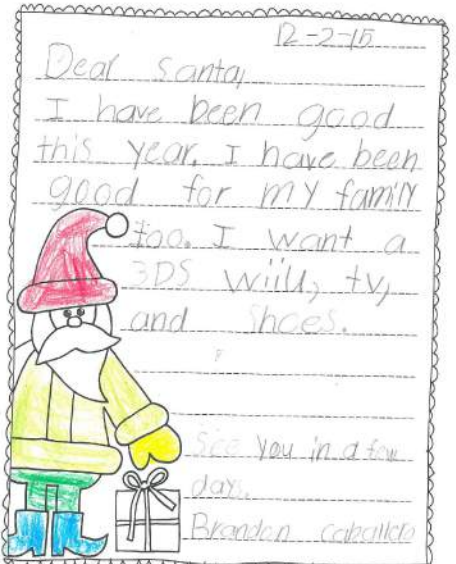 12-2-15
Dear Santa,
I have been good
this year. I have been
good for my family
too. I want a
3DS wiiU, tv,
and shoes.
See you in a few
days.
Brandon Caballero